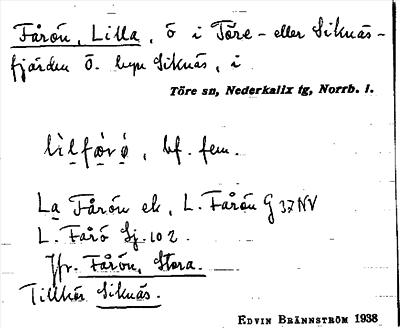 Fårön, Lilla, ö i Töre- eller Siknäs-
fjärden Ö. byn Siknäs, i
Töre sn, Nederkalix tg, Norrb. l.
lìlfǻrö, bf. fem.
La Fårön ek, L. Fårön G 37 NV
L. Fårö Sj. 102.
Jfr. Fårön, Stora.
Tillhör Siknäs.
EDVIN BRÄNNSTRÖM 1938